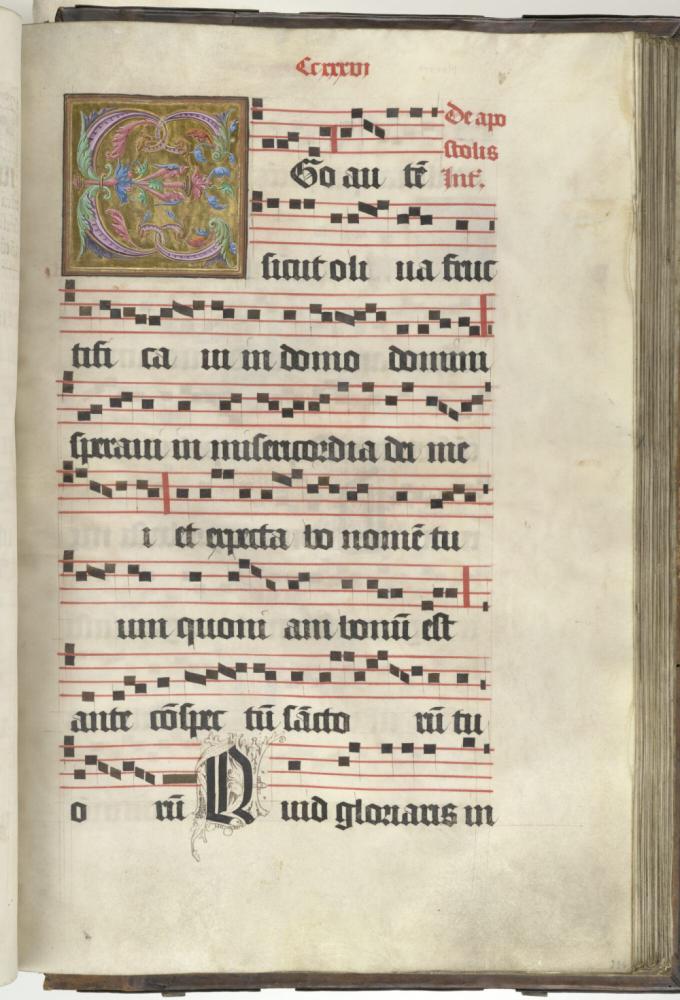 Ccxxxvj
EGo au tē
De apo
stolis
Int̄.
sicut oli ua fruc
tifi ca ui in domo domini
speraui in misericordia dei me
i et expecta bo nomē tu
um quoni am bonū est
ante cōspec tū sācto rū tu
o rū Quid gloriaris in